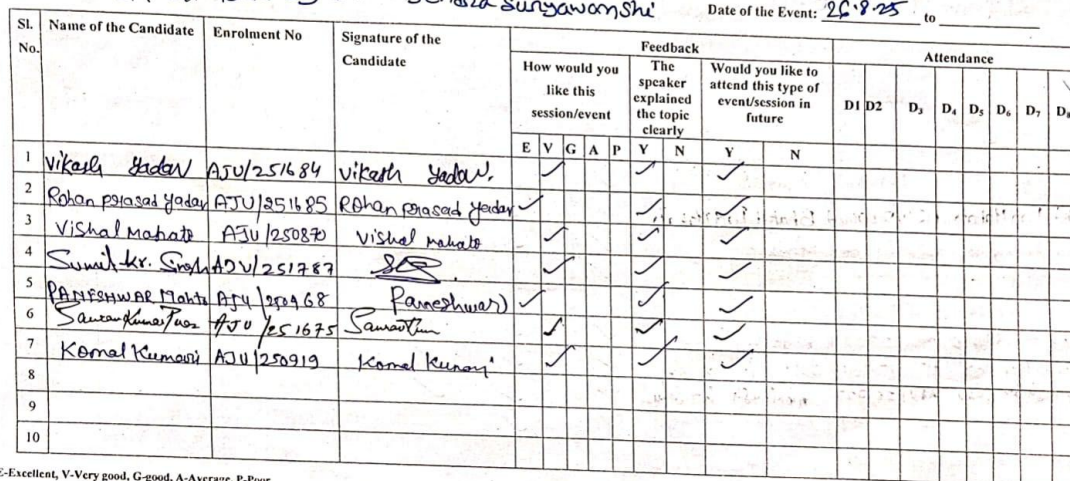 Suryawanshi Date of the Event: 26.8.25 to
Sl. No. Name of the Candidate Enrolment No Signature of the Candidate Feedback Attendance
How would you like this session/event The speaker explained the topic clearly Would you like to attend this type of event/session in future D1 D2 D3 D4 D5 D6 D7 D8
E V G A P Y N Y N
1 Vikash Yadav AJU/251684 Vikash Yadav.
2 Rohan prasad Yadav AJU/251685 Rohan prasad Yadav
3 Vishal Mahato AJU/250870 Vishal Mahato
4 Sumit kr. Singh AJU/251787
5 PAMESHWAR Mahto AJU/ Pameshwar
6 Kumar AJU/251675
7 Komal Kumari AJU/250919 Komal Kumari
8
9
10
E-Excellent, V-Very good, G-good, A-Average, P-Poor